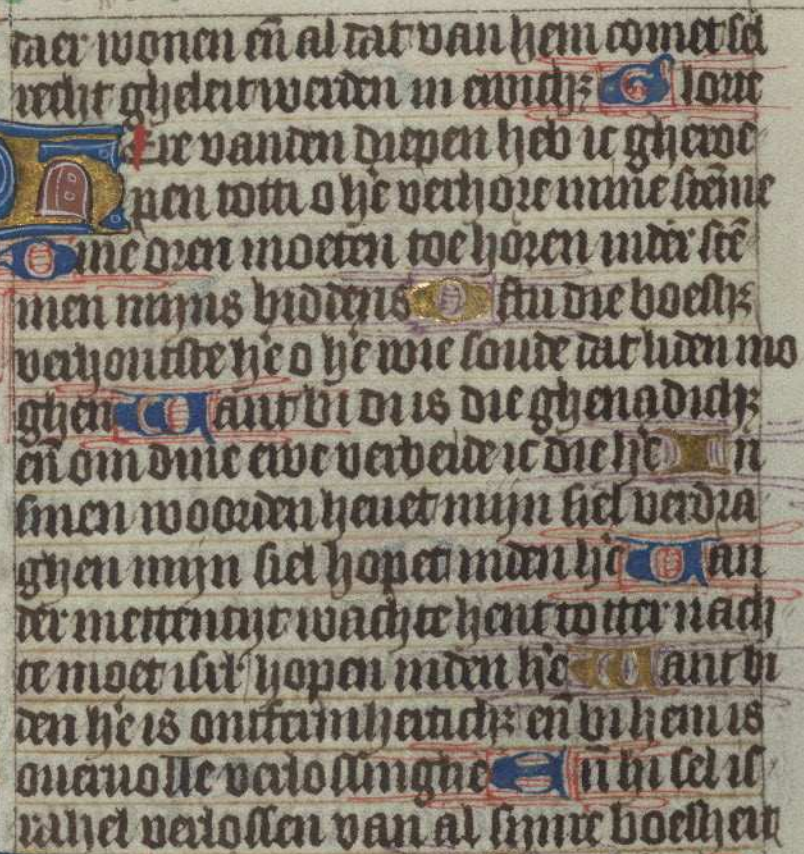 daer wonen en̄ al dat van hem comet sel
recht gheleit werden in ewichʒ Glorie
Here vanden diepen heb ic gheroe
pen totti o he̅ verhore mine ste̅me
Dine oren moeten toe horen inder ste̅
men mijns biddens O stu die boeshʒ
verhoutste he̅ o he̅ wie soude dat liden mo
ghen Want bi di is die ghenadichʒ
en̄ om dine ewe verbeide ic die he̅ In
sinen woorden hevet mijn siel verdra
ghen mijn siel hopet inden he̅ Van
der mettentijt wachte hent totter nach
te moet isrl' hopen inden he̅ Want bi
den he̅ is ontfermherticʒ en̄ bi hem is
overvolle verlossinghe En̄ hi sel is
rahel verlossen van al sijnre boesheit